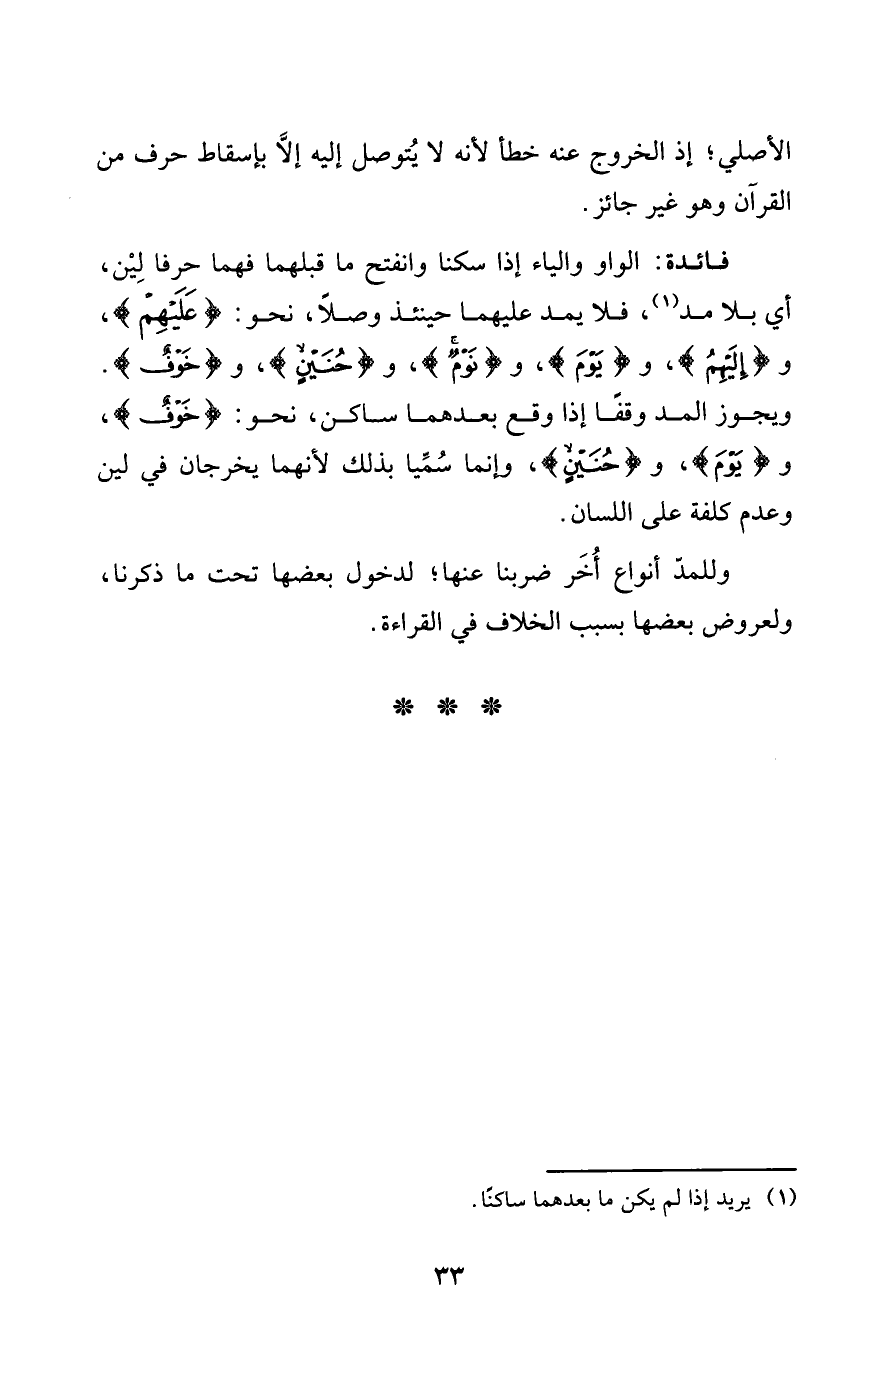 الأصلي؛ إذ الخروج عنه خطأ لأنه لا يُتوصل إليه إلاَّ بإسقاط حرف من
القرآن وهو غير جائز.
فائدة: الواو والياء إذا سكنا وانفتح ما قبلهما فهما حرفا لِيْن،
أي بلا مد(١)، فلا يمد عليهما حينئذ وصلاً، نحو: ﴿عَلَيْهِمْ﴾،
و﴿إِلَيْهِمُ﴾، و﴿يَوْمَ﴾، و﴿نَوْمٌۚ﴾، و﴿حُنَيْنٍۙ﴾، و﴿خَوْفٌ﴾.
ويجوز المد وقفًا إذا وقع بعدهما ساكن، نحو: ﴿خَوْفٌ﴾،
و﴿يَوْمَ﴾، و﴿حُنَيْنٍۙ﴾، وإنما سُمِّيا بذلك لأنهما يخرجان في لين
وعدم كلفة على اللسان.
وللمدّ أنواع أُخَر ضربنا عنها؛ لدخول بعضها تحت ما ذكرنا،
ولعروض بعضها بسبب الخلاف في القراءة.
* * *
(١) يريد إذا لم يكن ما بعدهما ساكنًا.
٣٣